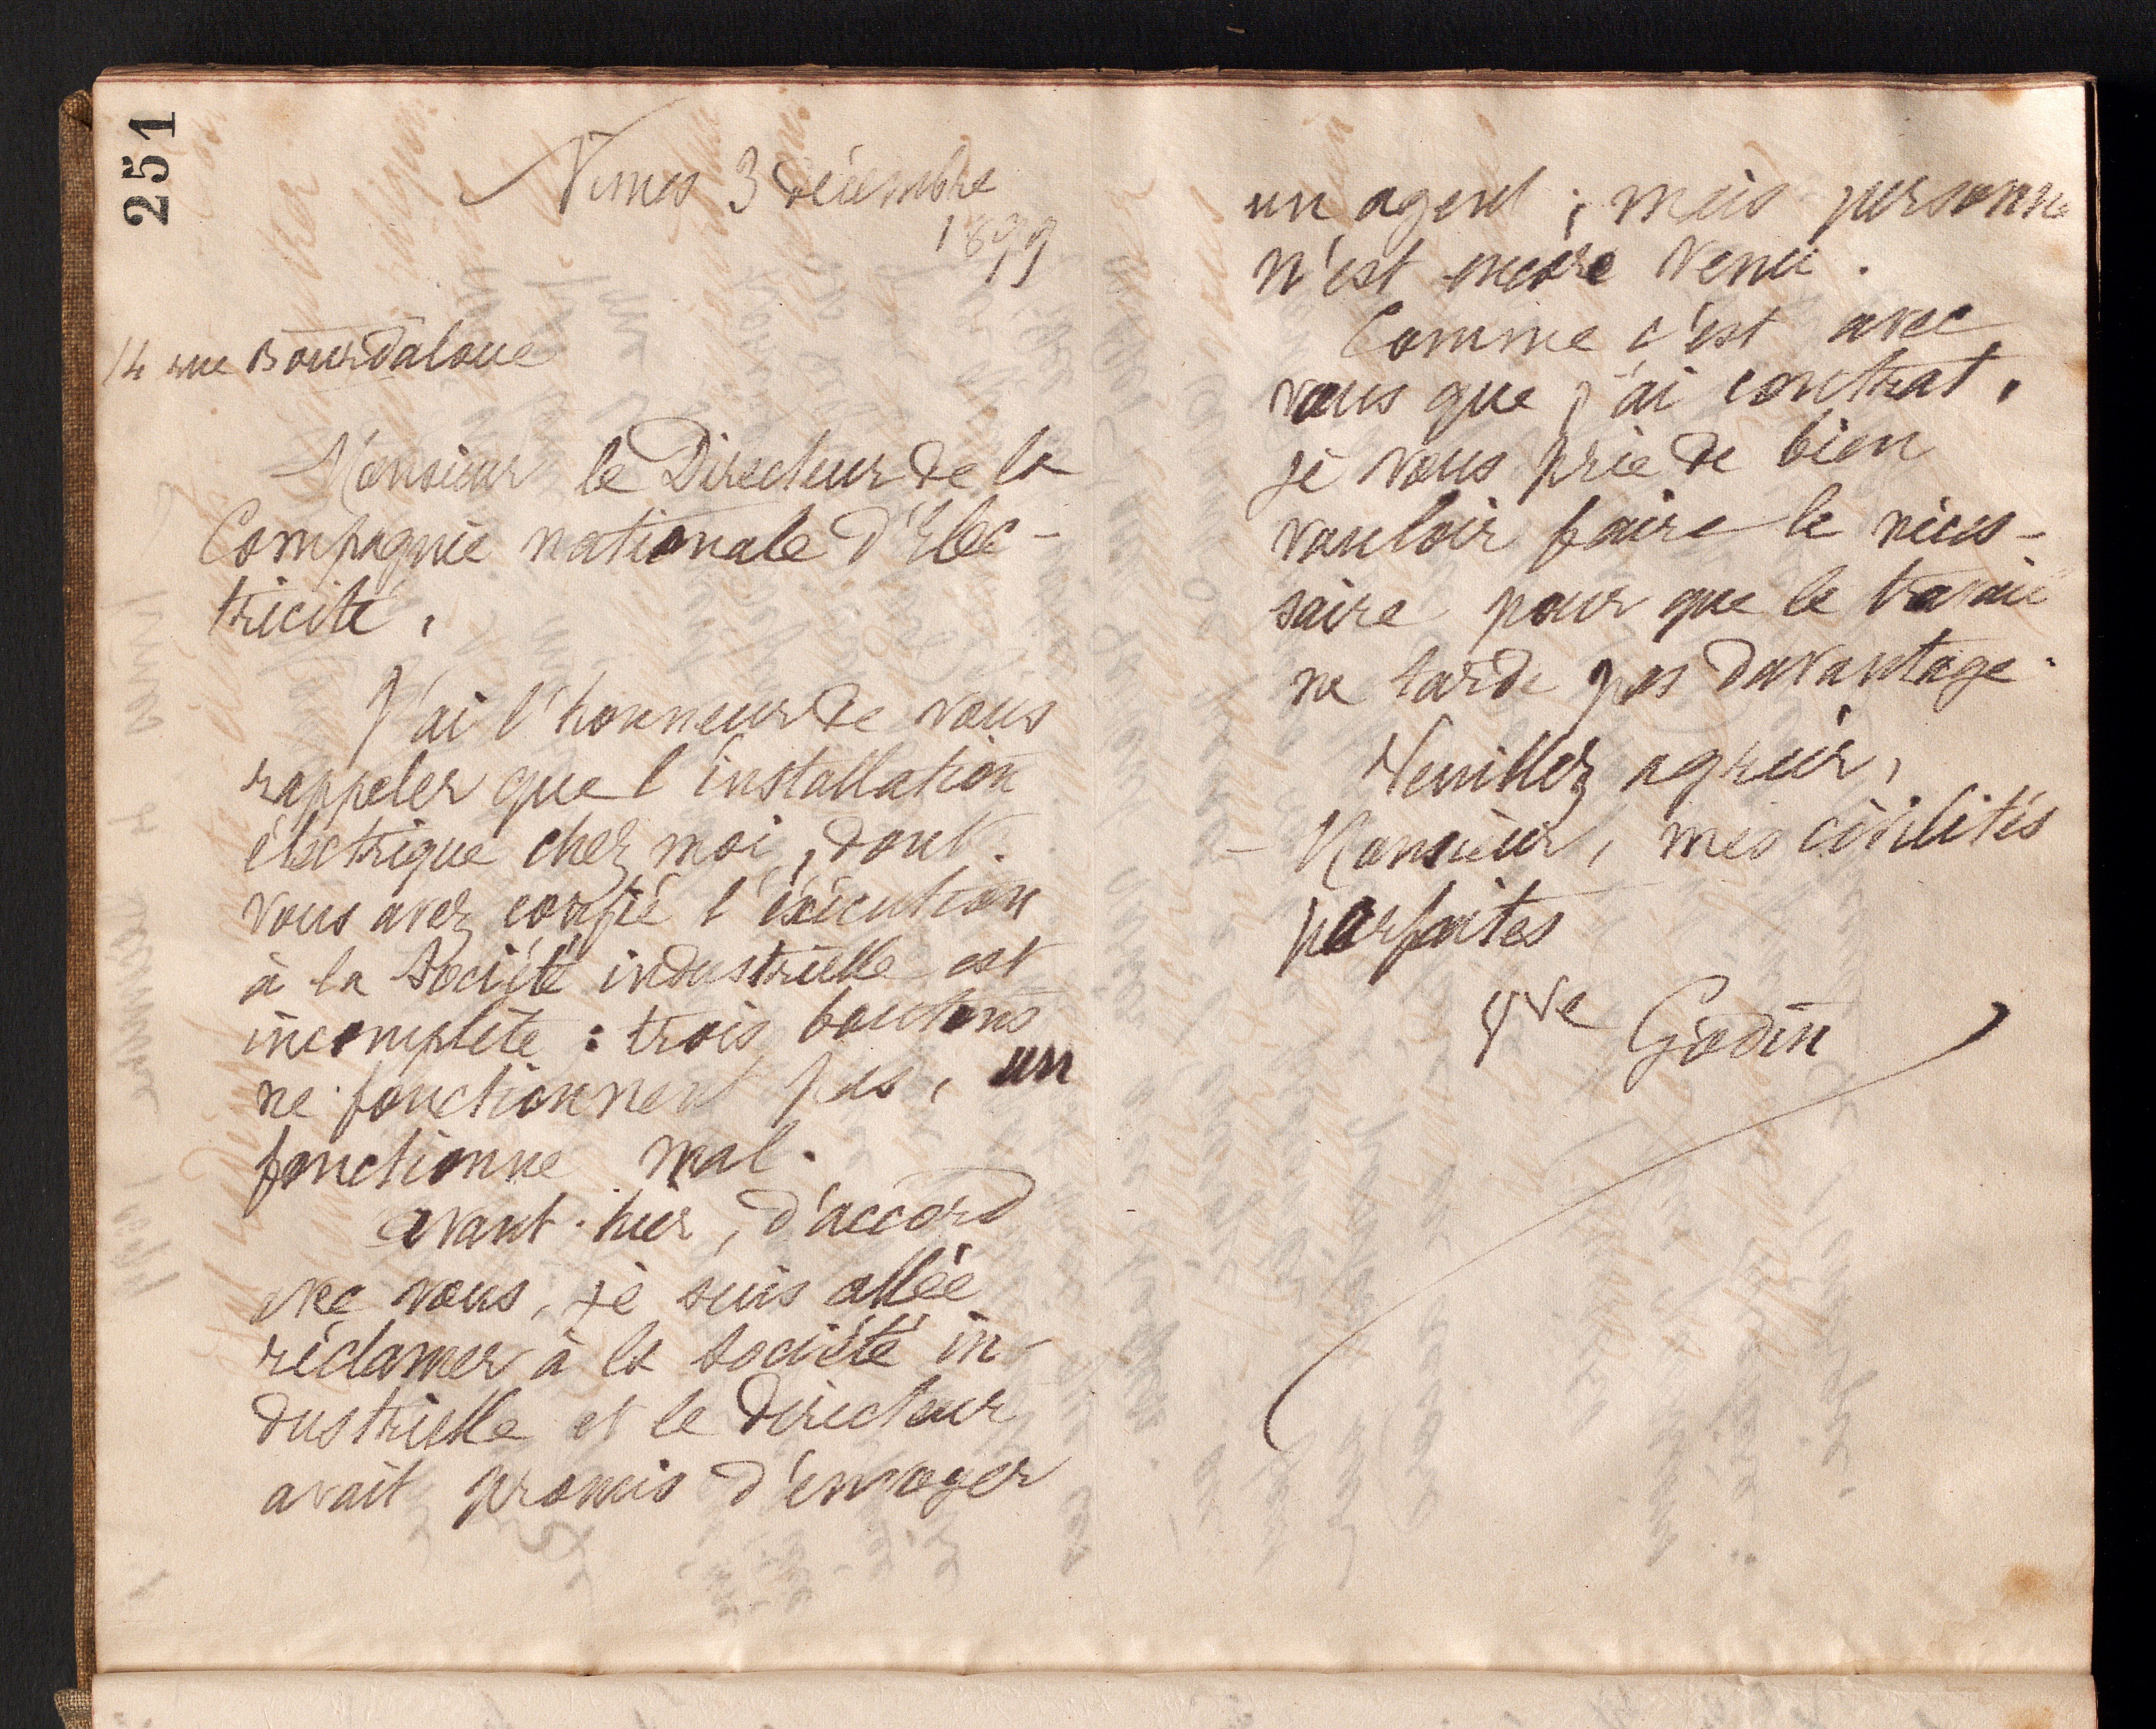 251
Nimes 3 décembre
1899
14 rue Bourdaloue
Monsieur le Directeur de la
Compagnie nationale d'Elec-
tricité,
J'ai l'honneur de vous
rappeler que l'installation
électrique chez moi, dont
vous avez confié l'éxécution
à la Société industrielle est
incomplète : trois boutons
ne fonctionnent pas, un
fonctionne mal.
avant-hier, d'accord
avec vous, je suis allée
réclamer à la société in-
dustrielle et le directeur
avait promis d'envoyer
un agent ; mais personne
n'est encore venu.
Comme c'est avec
vous que j'ai contrat,
je vous prie de bien
vouloir faire le néces-
saire pour que le travail
ne tarde pas davantage.
Veuillez agréer,
Monsieur, mes civilités
parfaites
Vve Godin